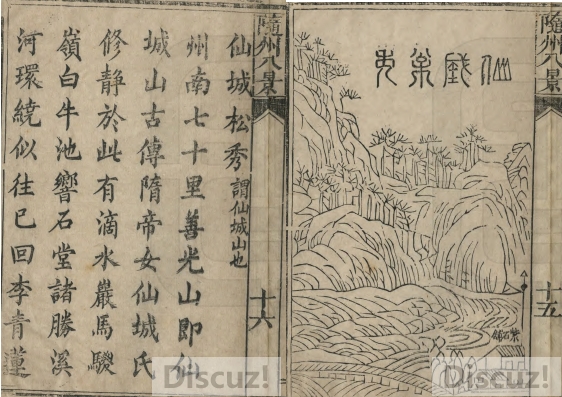 隨州八景
十五
仙城松秀
紫石鋪
隨州八景
十六
仙城松秀謂仙城山也
州南七十里善光山即仙
城山古傳隋帝女仙城氏
修靜於此有滴水巖馬騣
嶺白牛池響石堂諸勝溪
河環繞似往已回李青蓮
Discuz!
Discuz!